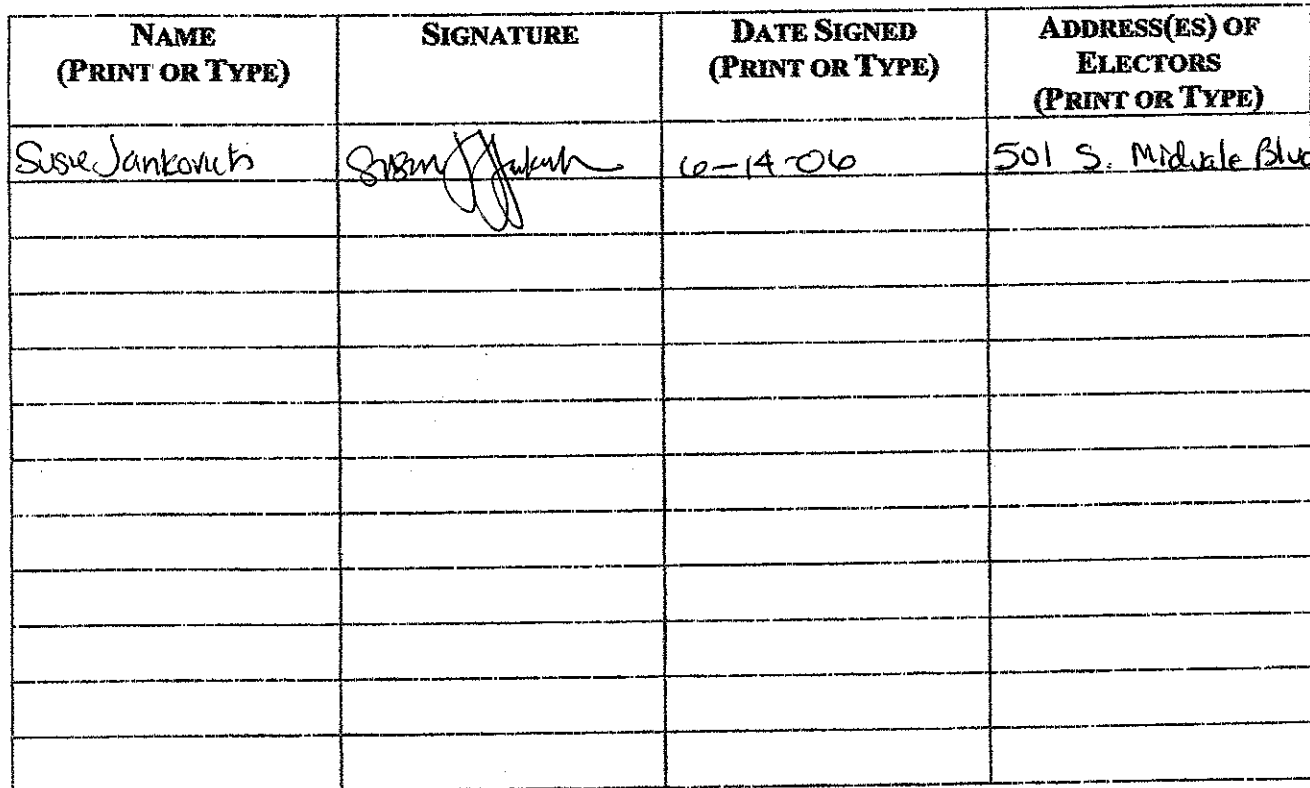 NAME
(PRINT OR TYPE)
SIGNATURE
DATE SIGNED
(PRINT OR TYPE)
ADDRESS(ES) OF
ELECTORS
(PRINT OR TYPE)
Susie Jankovich 6-14-06 501 S. Midvale Blvd